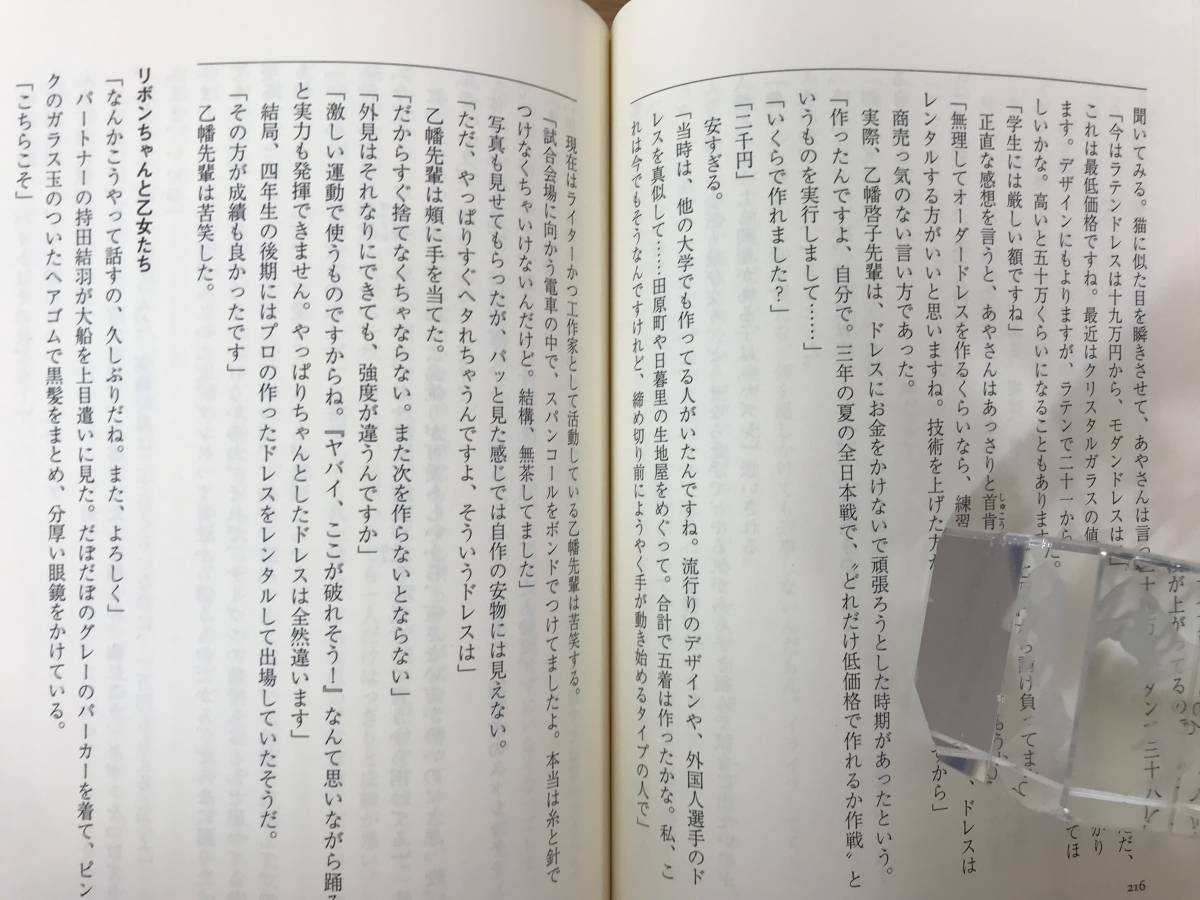 聞いてみる。猫に似た目を瞬きさせて、あやさんは言っ
「今はラテンドレスは十九万円から、モダンドレスは
これは最低価格ですね。最近はクリスタルガラスの値 が上が ってるの
ます。デザインにもよりますが、ラテンで二十一から
しいかな。高いと五十万くらいになることもありま た。
「学生には厳しい額ですね」
正直な感想を言うと、あやさんはあっさりと首肯
しゅこう
「無理してオーダードレスを作るくらいなら、練習 、ドレスは
レンタルする方がいいと思いますね。技術を上げた方 すから」
商売っ気のない言い方であった。
実際、乙幡啓子先輩は、ドレスにお金をかけないで頑張ろうとした時期があったという。
「作ったんですよ、自分で。三年の夏の全日本戦で、〝どれだけ低価格で作れるか作戦〟と
いうものを実行しまして……」
「いくらで作れました？」
「二千円」
安すぎる。
「当時は、他の大学でも作ってる人がいたんですね。流行りのデザインや、外国人選手のド
レスを真似して……田原町や日暮里の生地屋をめぐって。合計で五着は作ったかな。私、こ
れは今でもそうなんですけれど、締め切り前にようやく手が動き始めるタイプの人で」
216
現在はライターかつ工作家として活動している乙幡先輩は苦笑する。
「試合会場に向かう電車の中で、スパンコールをボンドでつけてましたよ。本当は糸と針で
つけなくちゃいけないんだけど。結構、無茶してました」
写真も見せてもらったが、パッと見た感じでは自作の安物には見えない。
「ただ、やっぱりすぐヘタれちゃうんですよ、そういうドレスは」
乙幡先輩は頰に手を当てた。
「だからすぐ捨てなくちゃならない。また次を作らないとならない」
「外見はそれなりにできても、強度が違うんですか」
「激しい運動で使うものですからね。『ヤバイ、ここが破れそう！』なんて思いながら踊る
と実力も発揮できません。やっぱりちゃんとしたドレスは全然違います」
結局、四年生の後期にはプロの作ったドレスをレンタルして出場していたそうだ。
「その方が成績も良かったです」
乙幡先輩は苦笑した。
リボンちゃんと乙女たち
「なんかこうやって話すの、久しぶりだね。また、よろしく」
パートナーの持田結羽が大船を上目遣いに見た。だぼだぼのグレーのパーカーを着て、ピン
クのガラス玉のついたヘアゴムで黒髪をまとめ、分厚い眼鏡をかけている。
「こちらこそ」